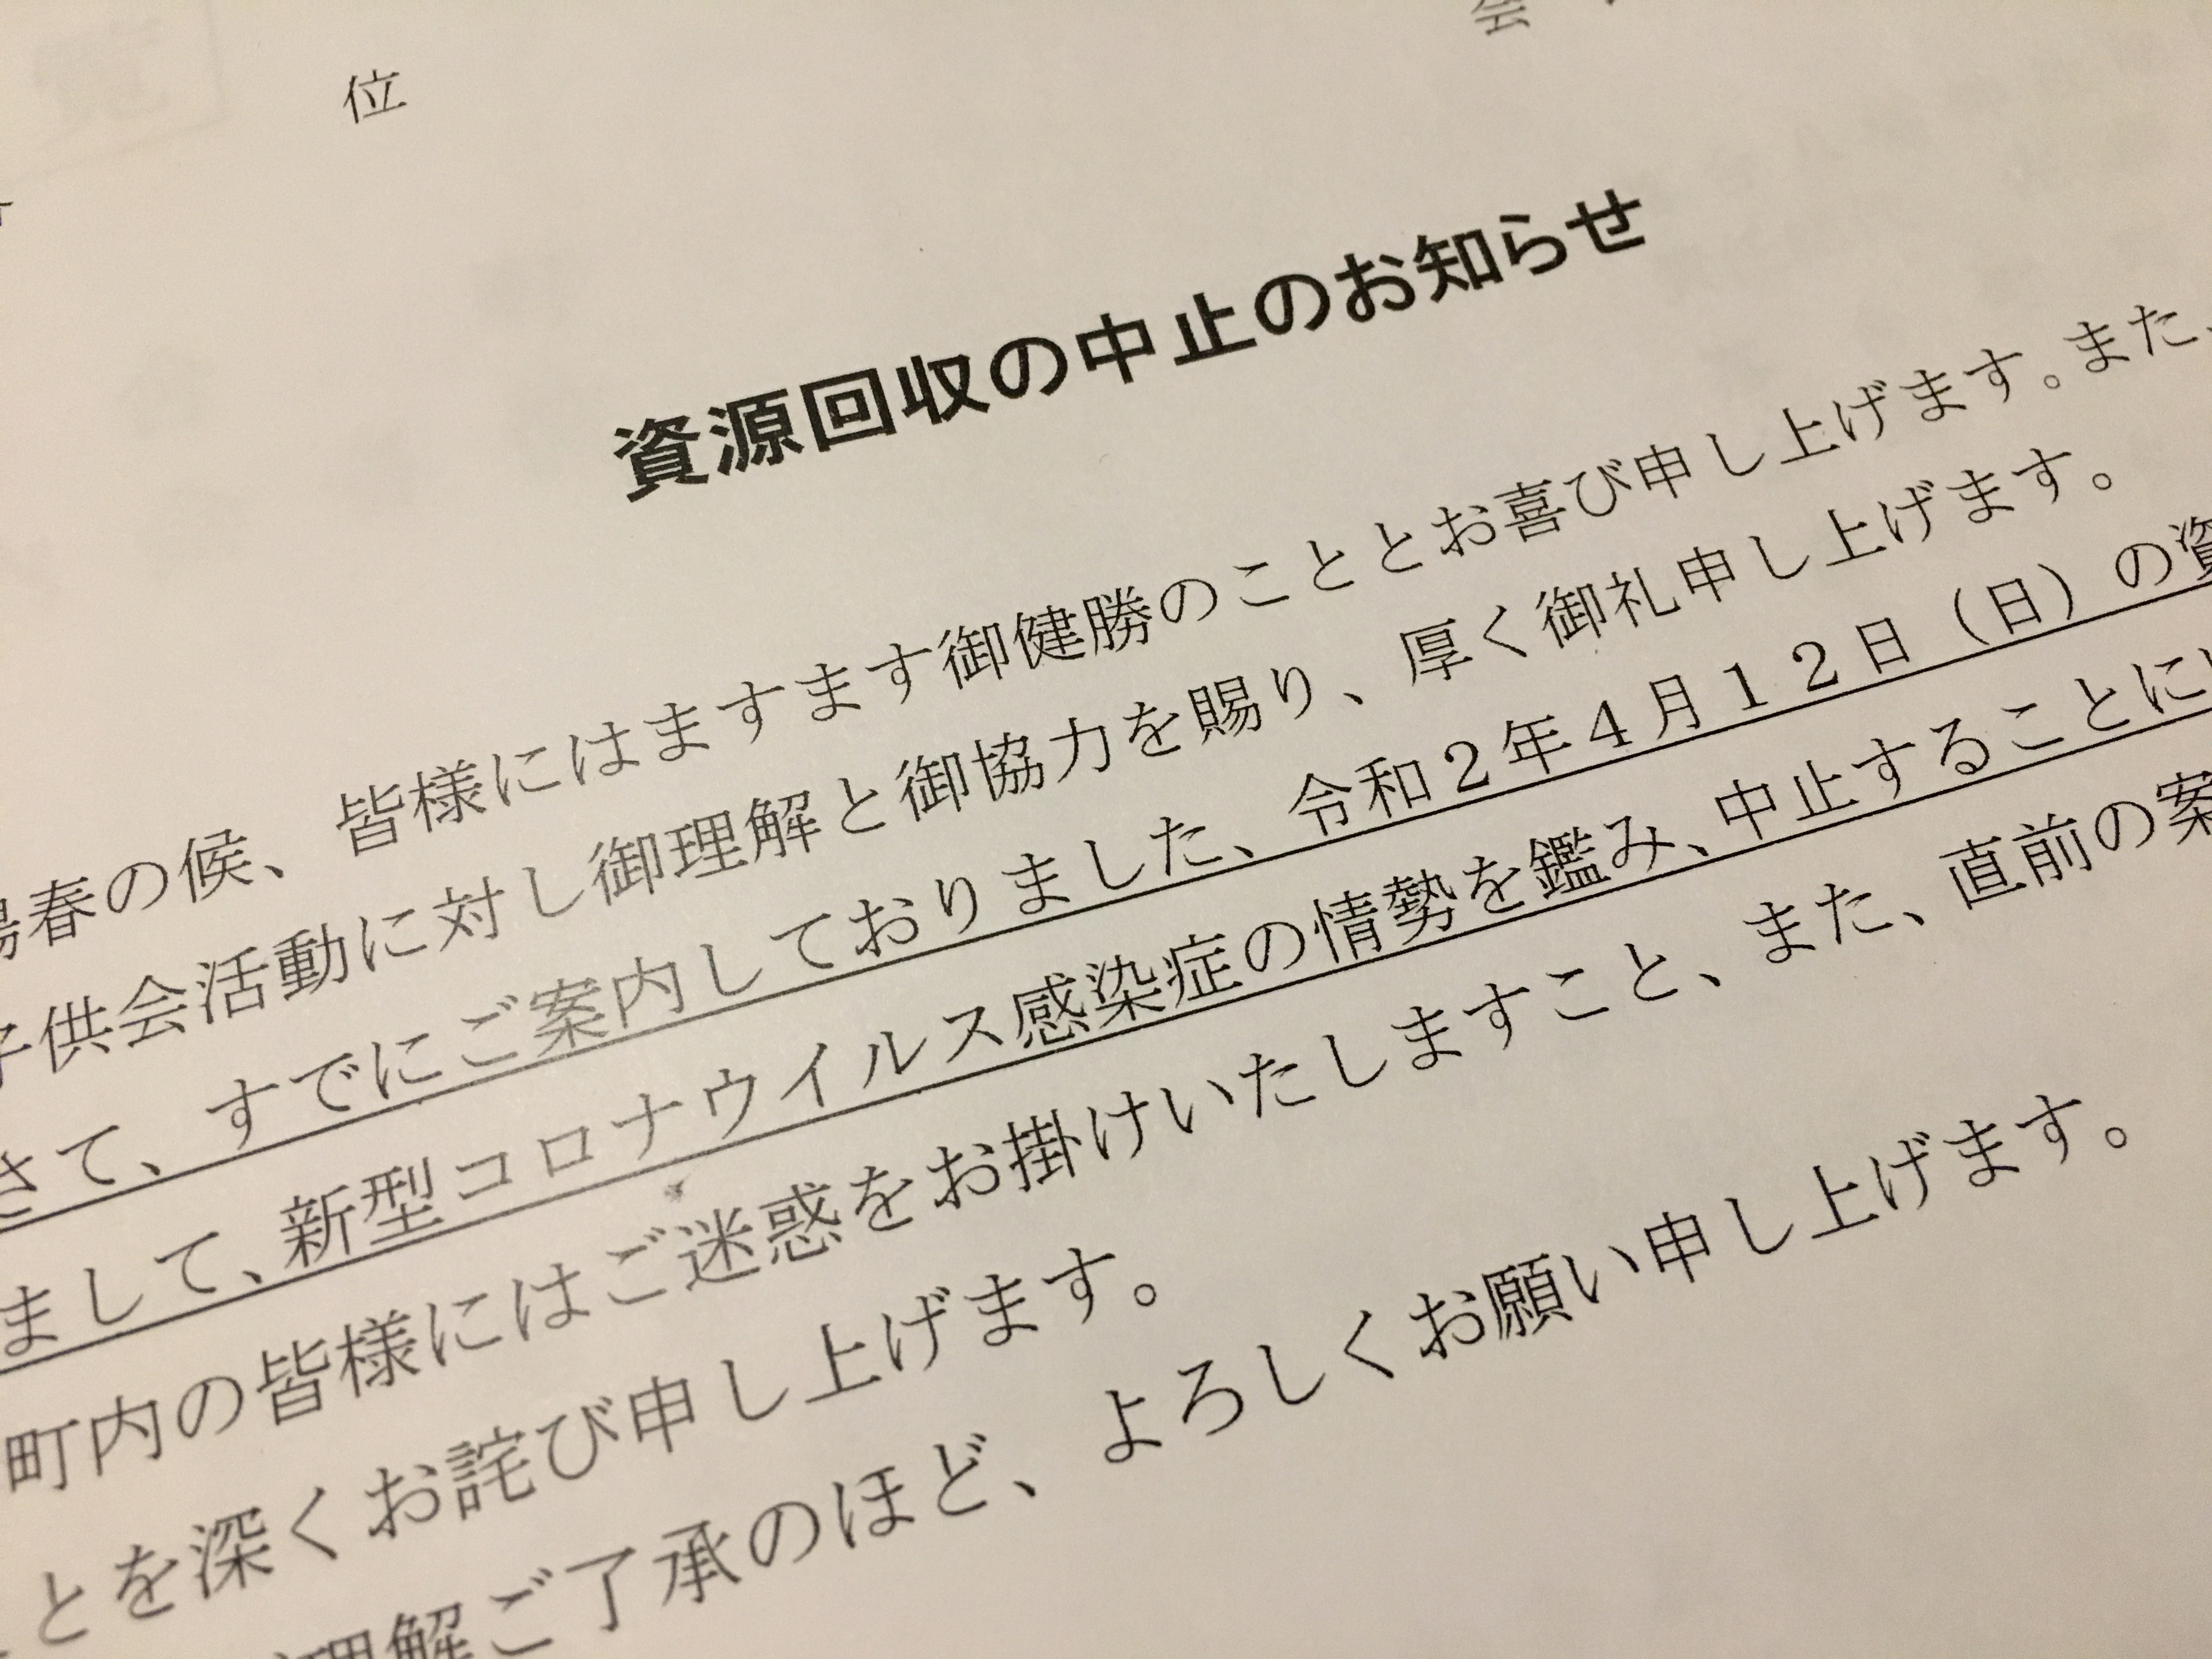 会
位
資源回収の中止のお知らせ
陽春の候、皆様にはますます御健勝のこととお喜び申し上げます。また、
子供会活動に対し御理解と御協力を賜り、厚く御礼申し上げます。
さて、すでにご案内しておりました、令和２年４月１２日（日）の資
まして、新型コロナウイルス感染症の情勢を鑑み、中止することに
町内の皆様にはご迷惑をお掛けいたしますこと、また、直前の案
とを深くお詫び申し上げます。
理解ご了承のほど、よろしくお願い申し上げます。